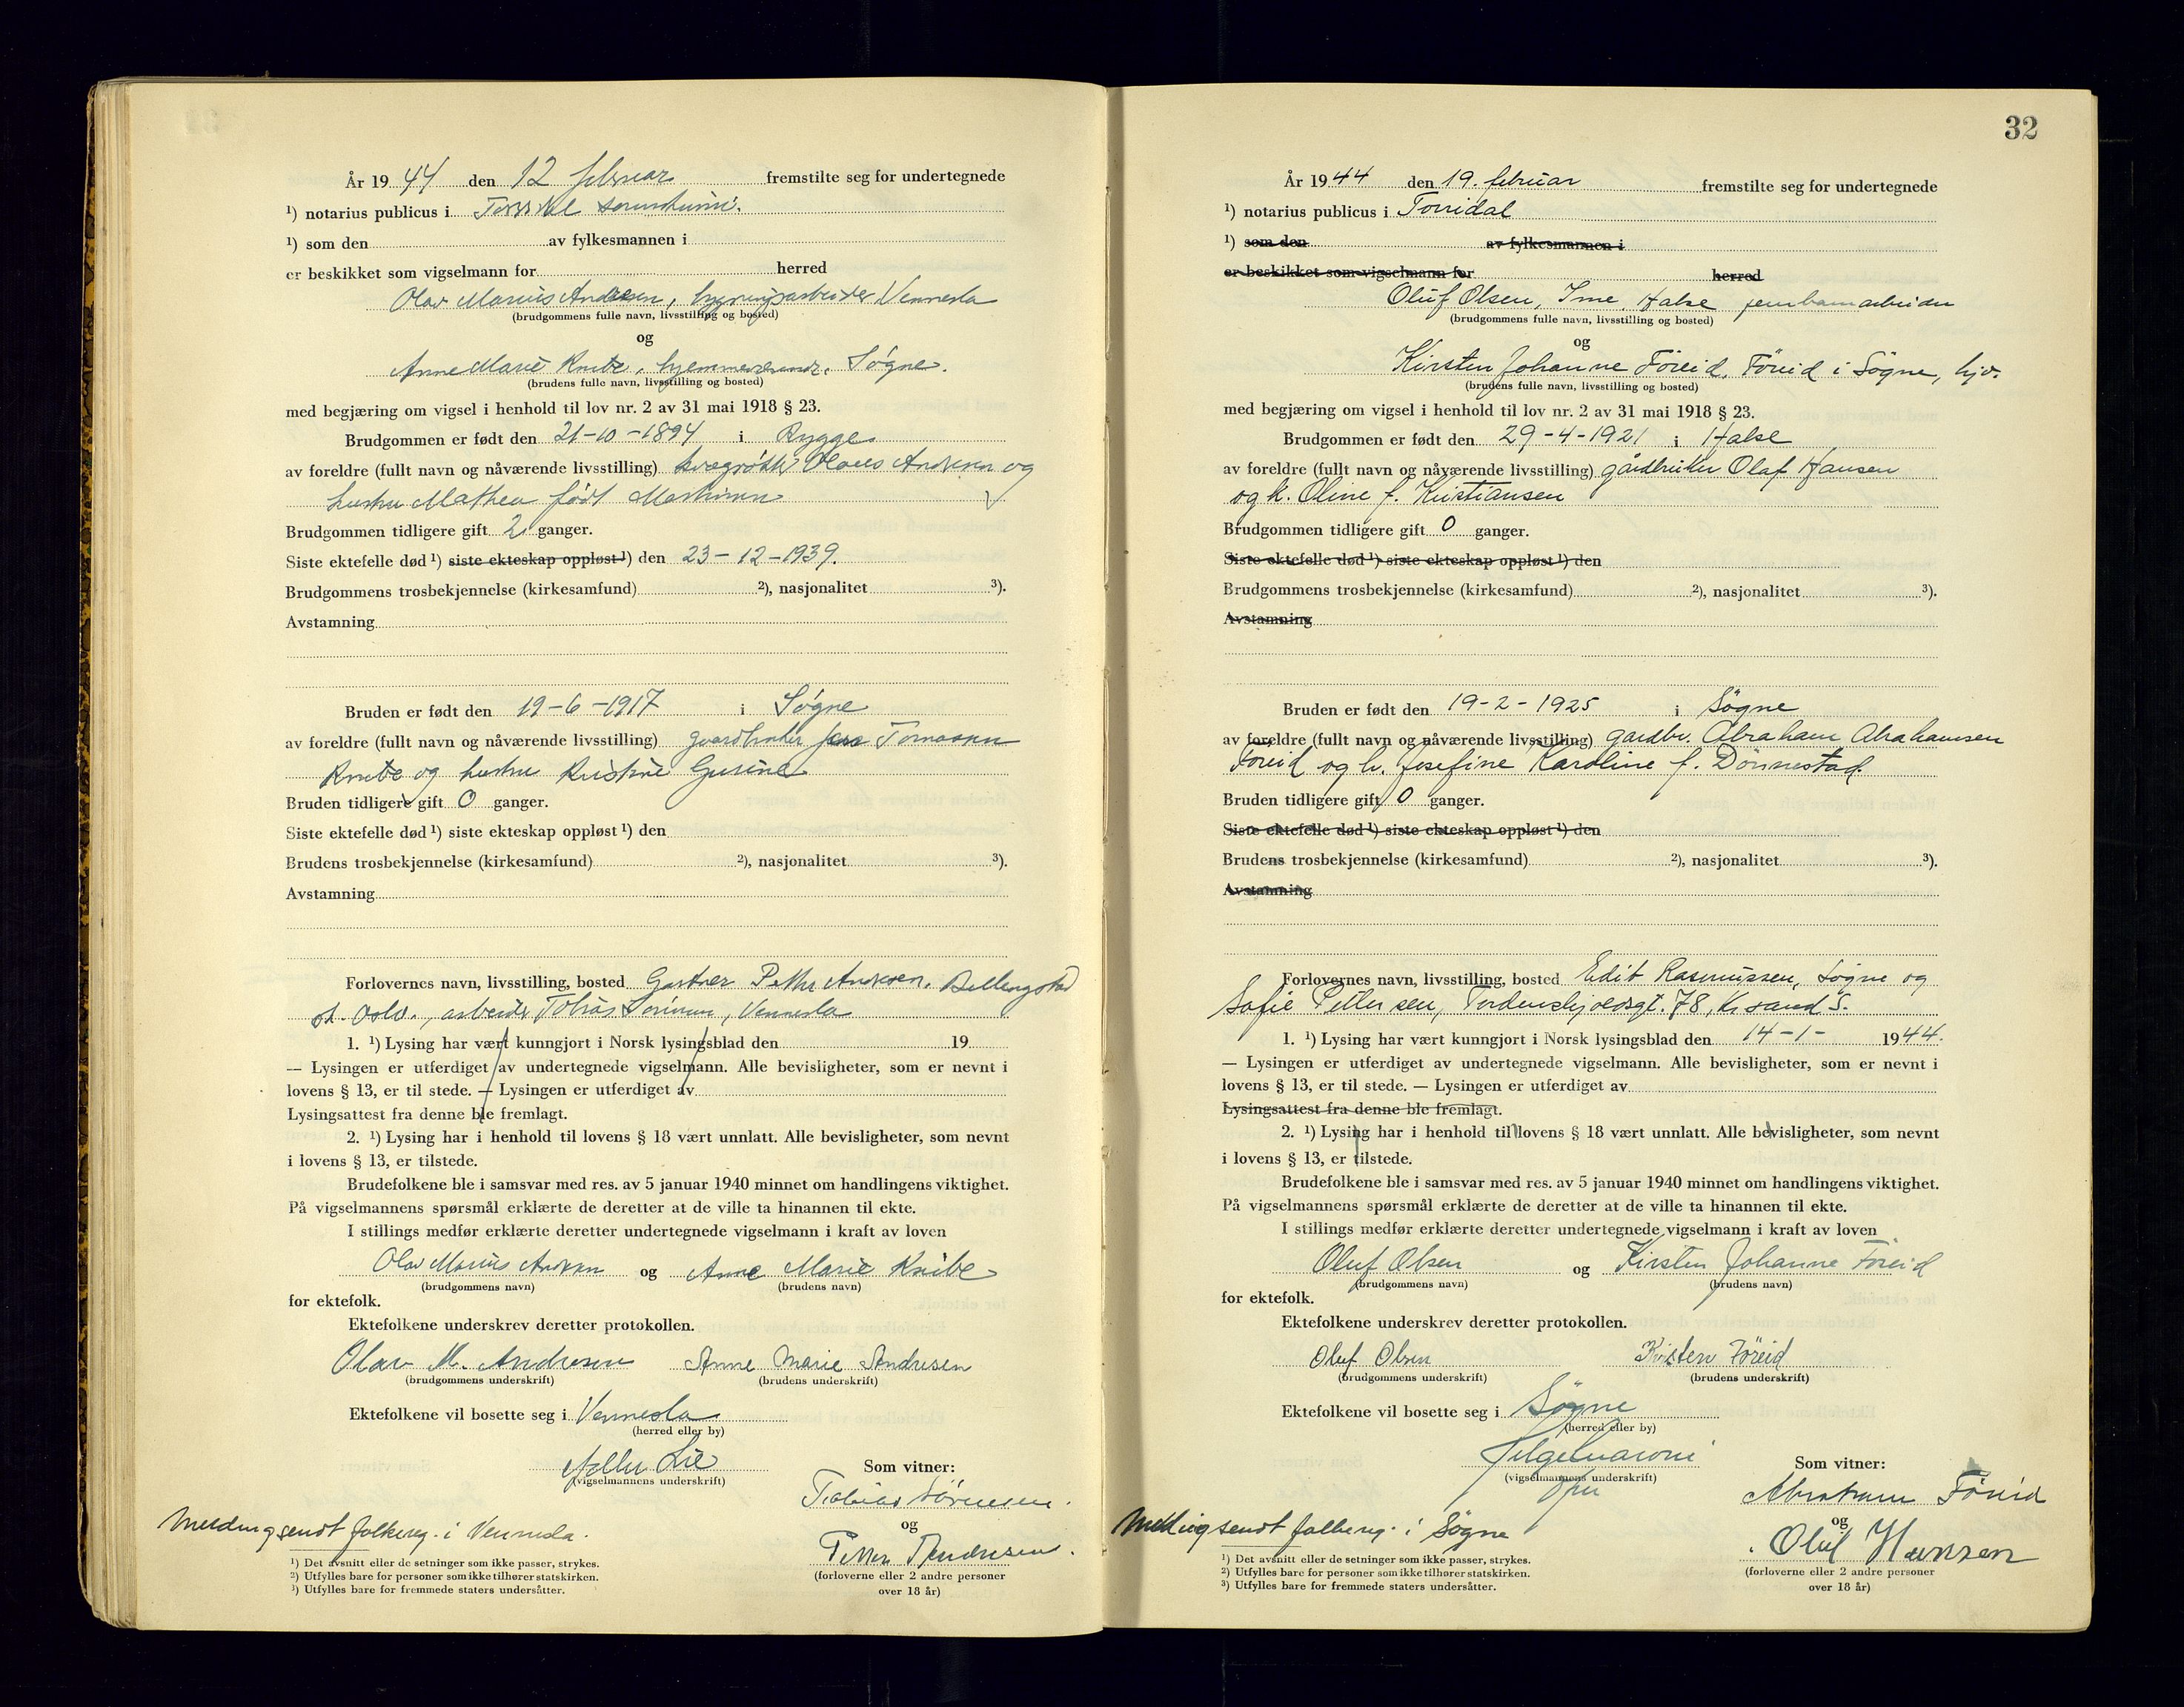 År 1944 den 12 februar fremstilte seg for undertegnede
¹) notarius publicus i Torridal
¹) som den av fylkesmannen i
er beskikket som vigselmann for herred
Olav Marius Andresen, Vennesla
(brudgommens fulle navn, livsstilling og bosted)
og
Anne Marie Knibe, Søgne.
(brudens fulle navn, livsstilling og bosted)
med begjæring om vigsel i henhold til lov nr. 2 av 31 mai 1918 § 23.
Brudgommen er født den 21-10-1894 i Rygge
av foreldre (fullt navn og nåværende livsstilling) Andresen og
hustru Mathea født
Brudgommen tidligere gift 2 ganger.
Siste ektefelle død ¹) siste ekteskap oppløst ¹) den 23-12-1939.
Brudgommens trosbekjennelse (kirkesamfund) ²), nasjonalitet ³).
Avstamning
Bruden er født den 19-6-1917 i Søgne
av foreldre (fullt navn og nåværende livsstilling) gaardbruker Jens Tomassen
Knibe og hustru Kristine Gurine
Bruden tidligere gift 0 ganger.
Siste ektefelle død ¹) siste ekteskap oppløst ¹) den
Brudens trosbekjennelse (kirkesamfund) ²), nasjonalitet ³).
Avstamning
Forlovernes navn, livsstilling, bosted Gartner Petter Andresen, Billingstad
st. Oslo., arbeider Tobias Sørensen, Vennesla
1. ¹) Lysing har vært kunngjort i Norsk lysingsblad den 19
— Lysingen er utferdiget av undertegnede vigselmann. Alle bevisligheter, som er nevnt i
lovens § 13, er til stede. — Lysingen er utferdiget av
Lysingsattest fra denne ble fremlagt.
2. ¹) Lysing har i henhold til lovens § 18 vært unnlatt. Alle bevisligheter, som nevnt
i lovens § 13, er tilstede.
Brudefolkene ble i samsvar med res. av 5 januar 1940 minnet om handlingens viktighet.
På vigselmannens spørsmål erklærte de deretter at de ville ta hinannen til ekte.
I stillings medfør erklærte deretter undertegnede vigselmann i kraft av loven
Olav Marius Andresen og Anne Marie Knibe
(brudgommens navn) (brudens navn)
for ektefolk.
Ektefolkene underskrev deretter protokollen.
Olav M. Andresen Anne Marie Andresen
(brudgommens underskrift) (brudens underskrift)
Ektefolkene vil bosette seg i Vennesla
(herred eller by)
Lie
(vigselmannens underskrift)
Som vitner:
Tobias Sørensen.
og
Petter Andresen.
(forloverne eller 2 andre personer
over 18 år)
Melding sendt folkereg. i Vennesla.
¹) Det avsnitt eller de setninger som ikke passer, strykes.
²) Utfylles bare for personer som ikke tilhører statskirken.
³) Utfylles bare for fremmede staters undersåtter.
32
År 1944 den 19. februar fremstilte seg for undertegnede
¹) notarius publicus i Torridal
¹) som den av fylkesmannen i
er beskikket som vigselmann for herred
Oluf Olsen, Ime, Halse jernbanearbeider
(brudgommens fulle navn, livsstilling og bosted)
og
Kirsten Johanne Föreid, Föreid i Sögne, hjv.
(brudens fulle navn, livsstilling og bosted)
med begjæring om vigsel i henhold til lov nr. 2 av 31 mai 1918 § 23.
Brudgommen er født den 29-4-1921 i Halse
av foreldre (fullt navn og nåværende livsstilling) gårdbruker Olaf Hansen
og h. Oline f. Kristiansen
Brudgommen tidligere gift 0 ganger.
Siste ektefelle død ¹) siste ekteskap oppløst ¹) den
Brudgommens trosbekjennelse (kirkesamfund) ²), nasjonalitet ³).
Avstamning
Bruden er født den 19-2-1925 i Sögne
av foreldre (fullt navn og nåværende livsstilling) gardbr. Abraham Abrahamsen
Föreid og h. Josefine Karoline f. Dönnestad.
Bruden tidligere gift 0 ganger.
Siste ektefelle død ¹) siste ekteskap oppløst ¹) den
Brudens trosbekjennelse (kirkesamfund) ²), nasjonalitet ³).
Avstamning
Forlovernes navn, livsstilling, bosted Edit Rasmussen, Sögne og
Sofie Pettersen, Tordenskjoldsgt. 78, Kr.sand S.
1. ¹) Lysing har vært kunngjort i Norsk lysingsblad den 14-1- 1944.
— Lysingen er utferdiget av undertegnede vigselmann. Alle bevisligheter, som er nevnt i
lovens § 13, er til stede. — Lysingen er utferdiget av
Lysingsattest fra denne ble fremlagt.
2. ¹) Lysing har i henhold til lovens § 18 vært unnlatt. Alle bevisligheter, som nevnt
i lovens § 13, er tilstede.
Brudefolkene ble i samsvar med res. av 5 januar 1940 minnet om handlingens viktighet.
På vigselmannens spørsmål erklærte de deretter at de ville ta hinannen til ekte.
I stillings medfør erklærte deretter undertegnede vigselmann i kraft av loven
Oluf Olsen og Kirsten Johanne Föreid
(brudgommens navn) (brudens navn)
for ektefolk.
Ektefolkene underskrev deretter protokollen.
Oluf Olsen Kirsten Föreid
(brudgommens underskrift) (brudens underskrift)
Ektefolkene vil bosette seg i Sögne
(herred eller by)
(vigselmannens underskrift)
Som vitner:
Abraham Föreid
og
Oluf Hansen
(forloverne eller 2 andre personer
over 18 år)
Melding sendt folkereg. i Sögne
¹) Det avsnitt eller de setninger som ikke passer, strykes.
²) Utfylles bare for personer som ikke tilhører statskirken.
³) Utfylles bare for fremmede staters undersåtter.